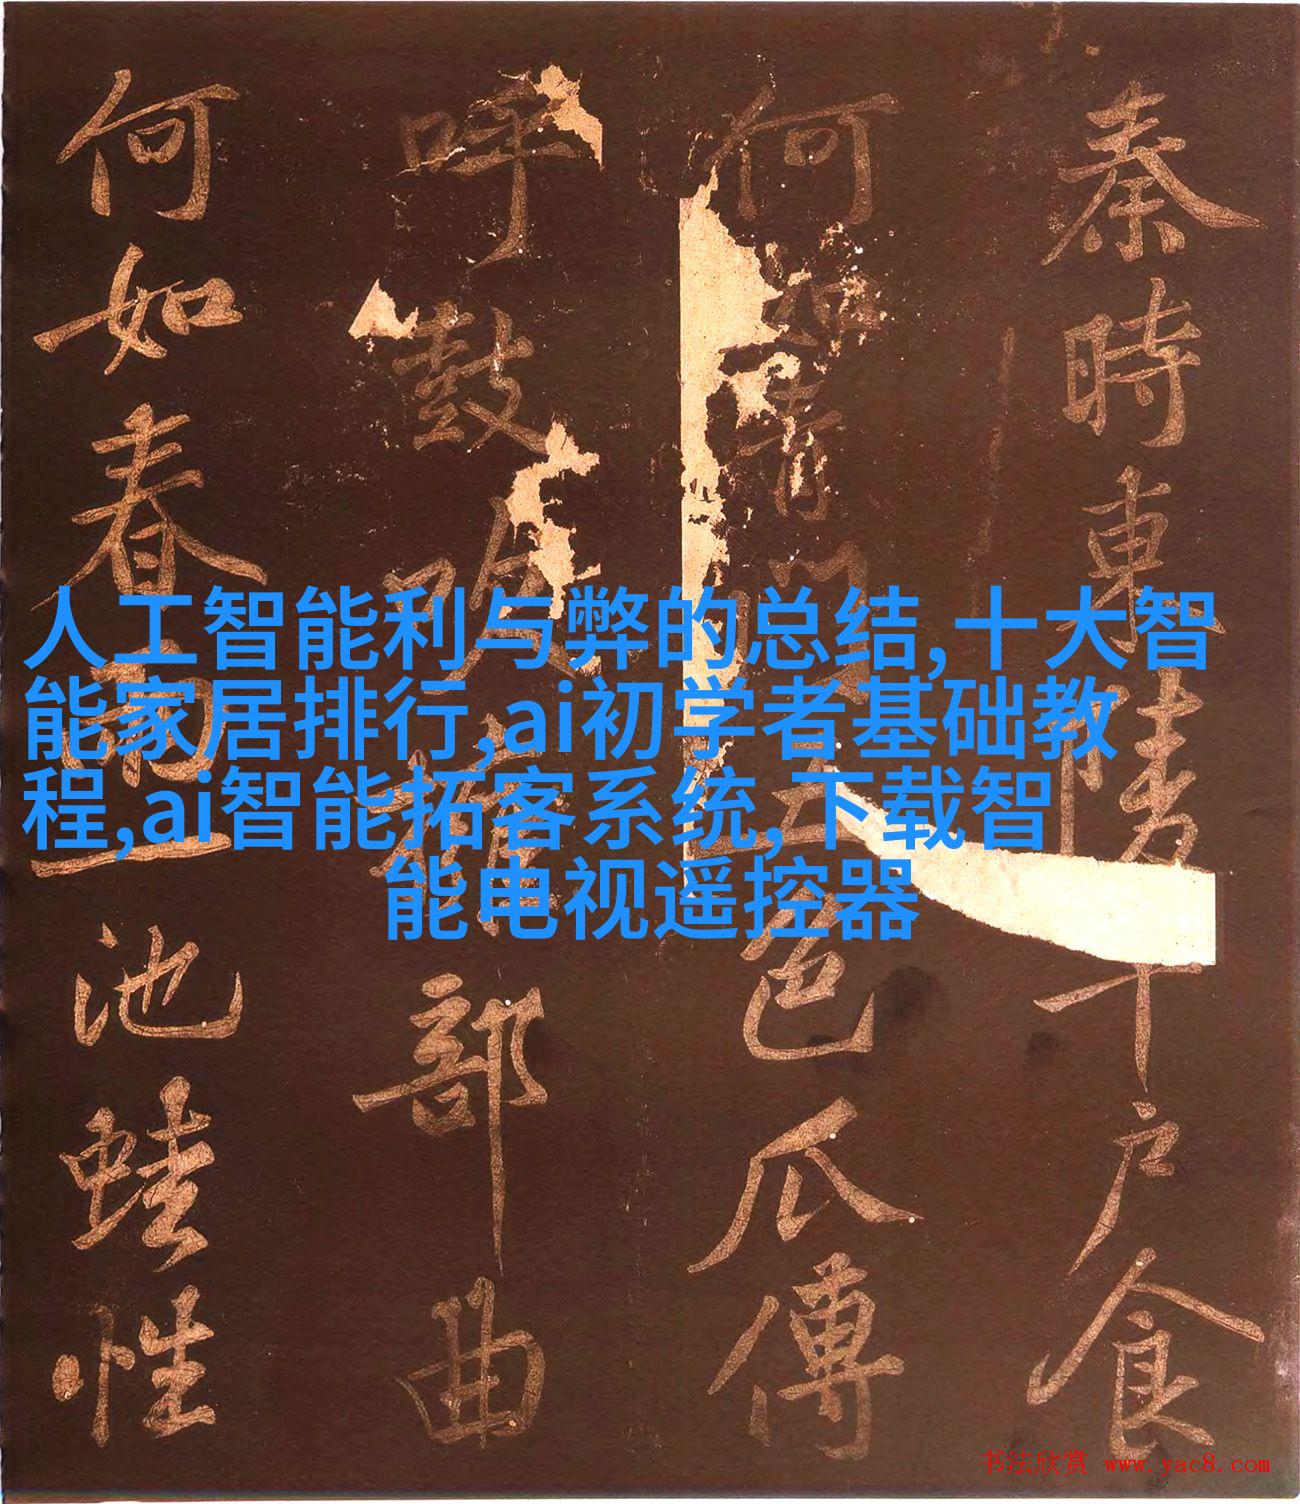 秦時東陵千户食
何如青門五色瓜傅
呼鼓吹雄部曲
何如春雨一池蛙性
人工智能利与弊的总结,十大智
能家居排行,ai初学者基础教
程,ai智能拓客系统,下载智
能电视遥控器
书法欣赏 www.yac8.com